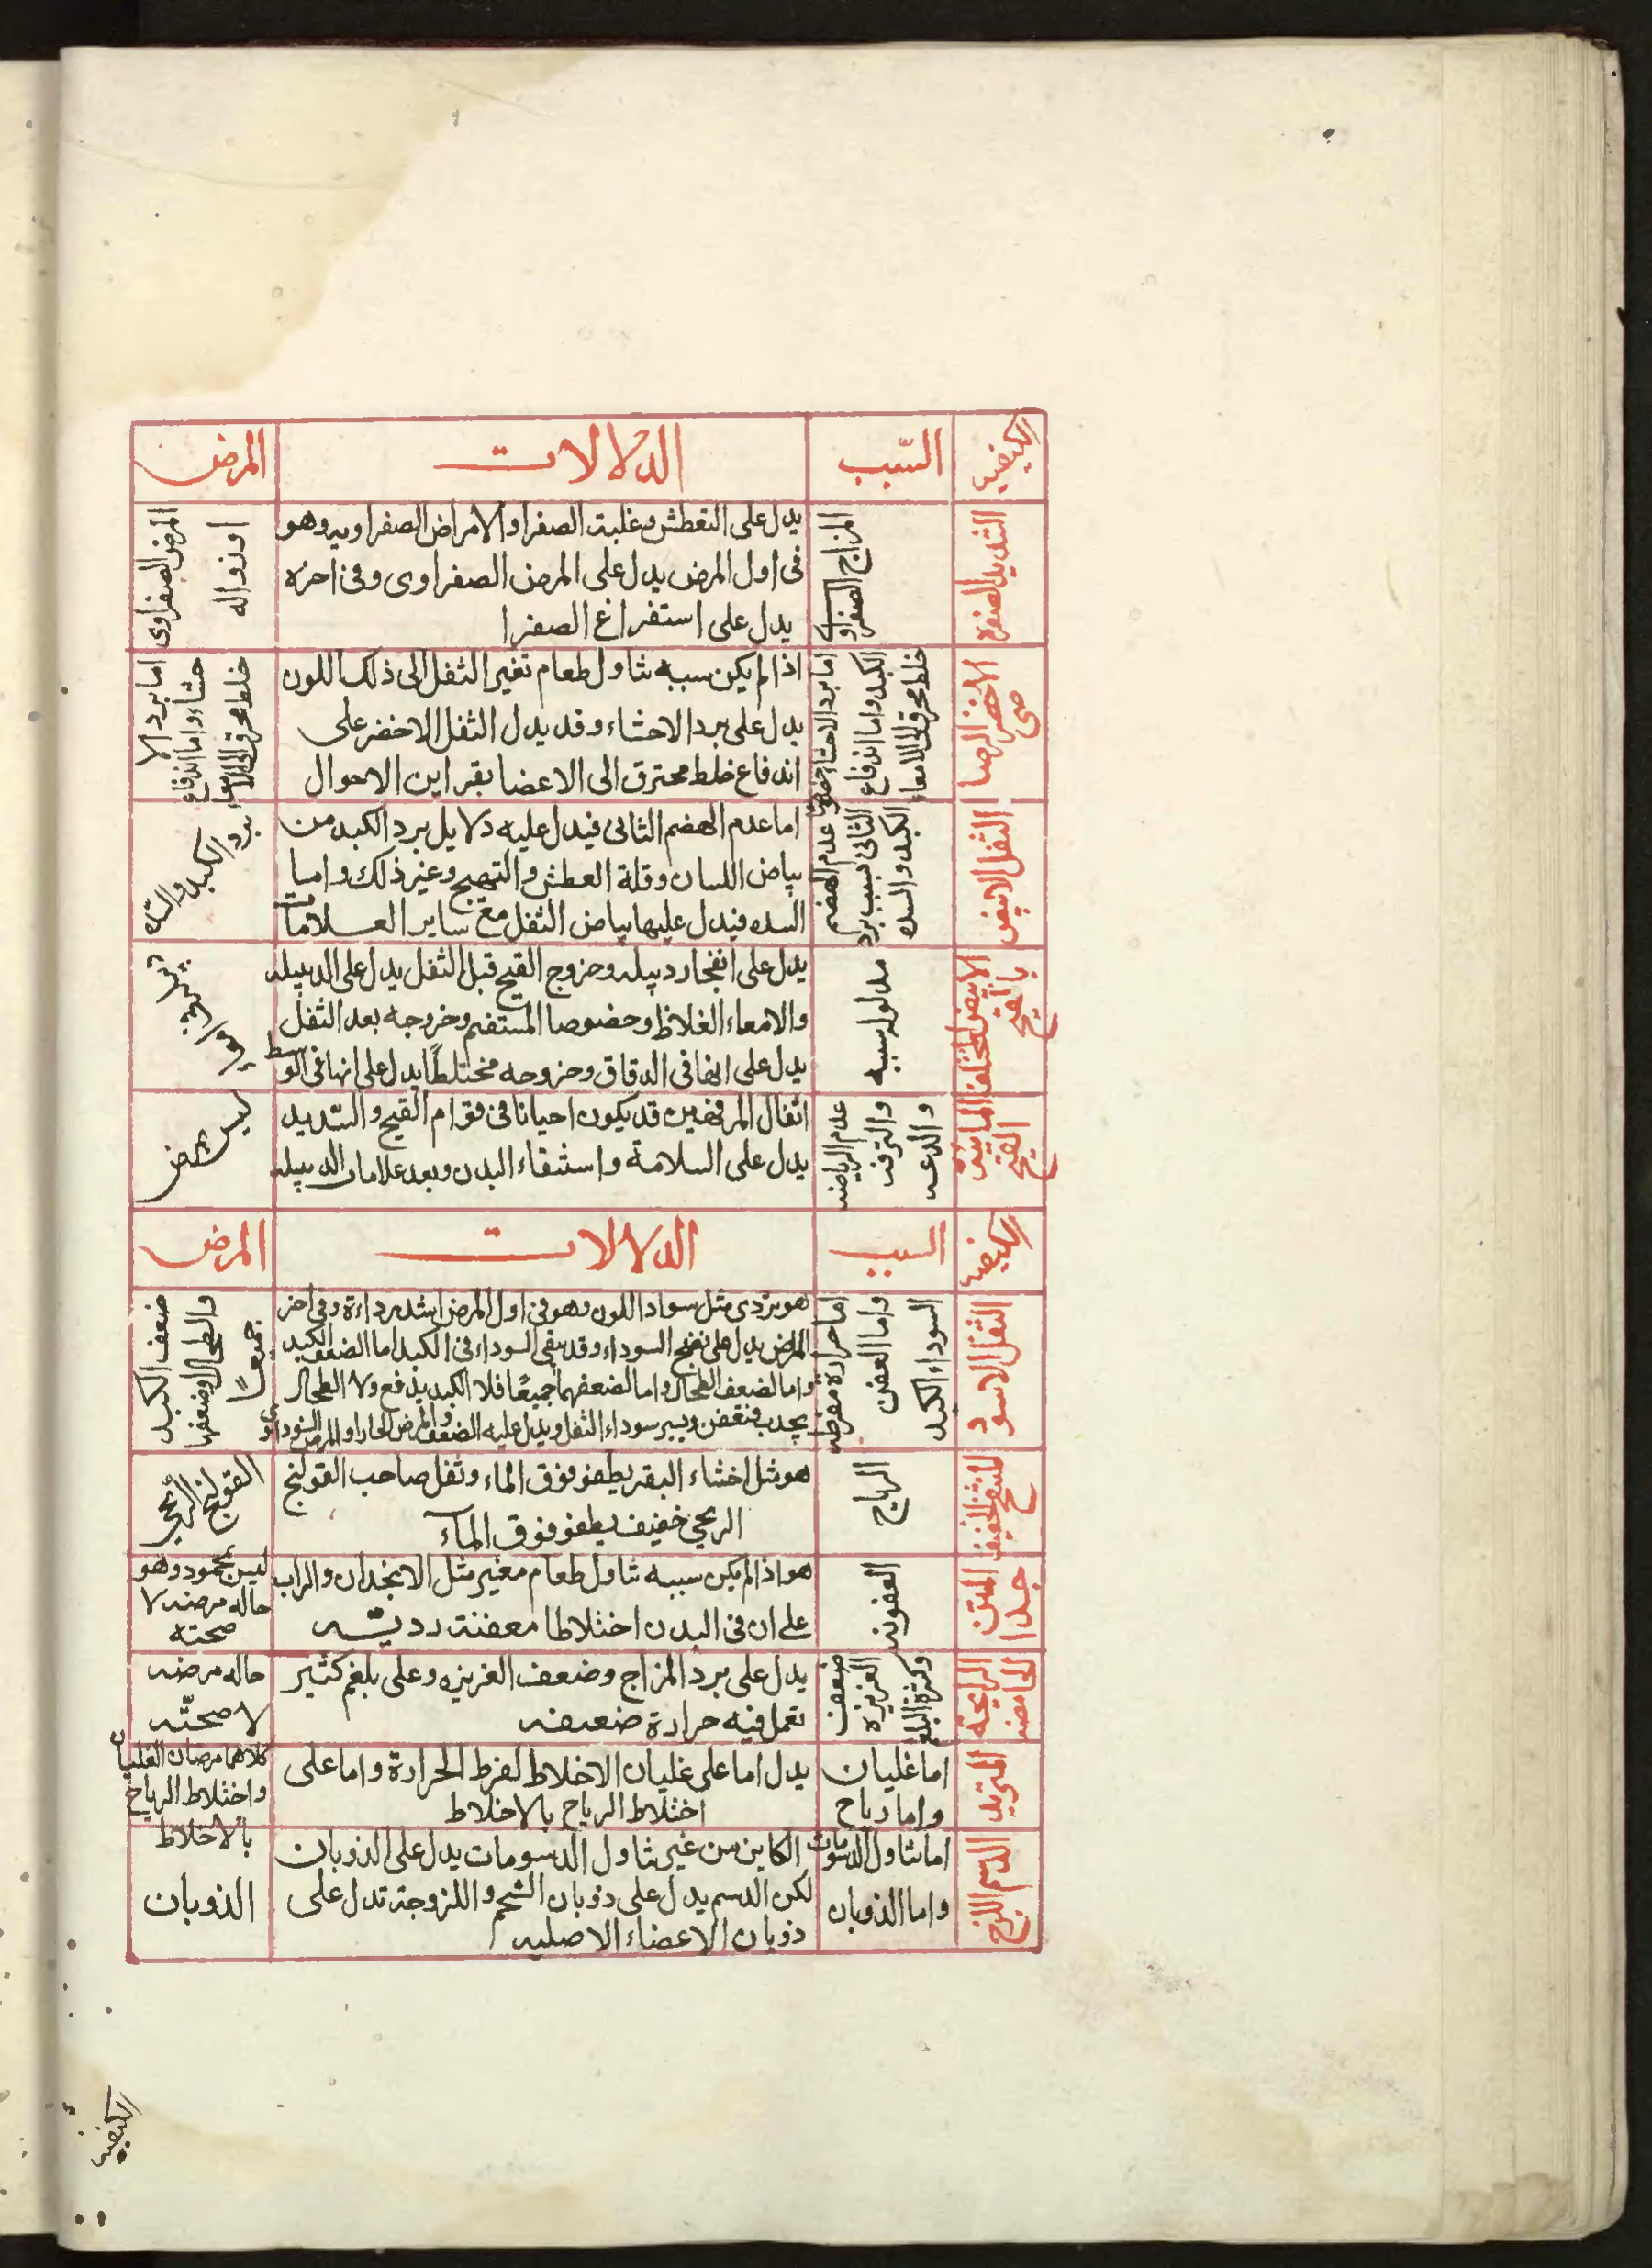 الكيفيه
السبب
الدلالات
المرض
الشديد الصفره
المزاج
الصفراوى
يدل على التعطش وغلبة الصفرا والامراض الصفراويه وهو
فى اول المرض يدل على المرض الصفراوى وفى اخره
يدل على استفراغ الصفرا
المرض الصفراوى
او زواله
الاخضر الرصا
صى
اما برد الاحشاء خصوصا
الكبد واما اندفاع
خلط محرق الى الامعاء
اذا لم يكن سببه تناول طعام تغير الثفل الى ذلك اللون
يدل على برد الاحشاء وقد يدل الثفل الاخضر على
اندفاع خلط محترق الى الاعضا بقراين الاحوال
اما برد الا
حشاء واما اندفاع
خلط محرق الى الامعاء
الثفل الابيض
عدم الهضم
الثانى بسبب برد
الكبد والسده
اما عدم الهضم الثانى فيدل عليه دلايل برد الكبد من
بياض اللسان وقلة العطش والتهيج وغير ذلك واما
السده فيدل عليها بياض الثفل مع ساير العلامات
برد الكبد والسده
الابيض المختلف
بالقيح
مدلول سببه
يدل على انفجار دبيله وخروج القيح قبل الثفل يدل على الدبيله
والامعاء الغلاظ وخصوصا المستقيم وخروجه بعد الثفل
يدل على انها فى الدقاق وخروجه مختلطًا يدل على انها فى الوسط
القيح
عدم الرياضه
والترفه
والدعه
اثفال المرفهين قد يكون احيانا فى قوام القيح والتديد
يدل على السلامة واستنقاء البدن وبعد علامات الدبيله
ليس بمرض
الكيفيه
السبب
الدلالات
المرض
الثفل الاسود
اما حرارة مفرطه
واما العفن
السوداء الكبد
هو يزدى مثل سواد اللون وهو فى اول المرض اشد رداءة وفى اخر
المرض يدل على نضج السوداء وقد يبقى السوداء فى الكبد اما الضعف الكبد
واما لضعف الطحال واما لضعفهما جميعًا فلا الكبد يدفع ولا الطحال
يجدب
ضعف الكبد
والطحال وضعفهما
جميعًا
المنتفخ الخفيف
الرياح
هو مثل اخثاء البقر يطفو فوق الماء وثفل صاحب القولنج
الريحى خفيف يطفو فوق المآء
القولنج الريحى
المنتن
جدا
العفونه
هو اذا لم يكن سببه تناول طعام مغير مثل الانجدان والراب
على ان فى البدن اختلاطا معفنة رديئه
ليس بمحمود وهو
حاله مرضه لا
صحته
الرايحة
الحامضه
ضعف
الغريزه
وكثرة البلغم
يدل على برد المزاج وضعف الغريزه وعلى بلغم كثير
تعمل فيه حرارة ضعيفه
حاله مرضه
لا صحته
المتزبد
اما غليان
واما رياح
يدل اما على غليان الاخلاط لفرط الحرارة واما على
اختلاط الرياح بالاخلاط
كلاهما مرضان الغليان
واختلاط الرياح
بالاخلاط
الدسم اللزج
اما تناول الدسومات
واما الذوبان
الكاين من غير تناول الدسومات يدل على الذوبان
لكن الدسم يدل على ذوبان الشحم واللزوجة تدل على
ذوبان الاعضاء الاصليه
الذوبان
الكيفيه